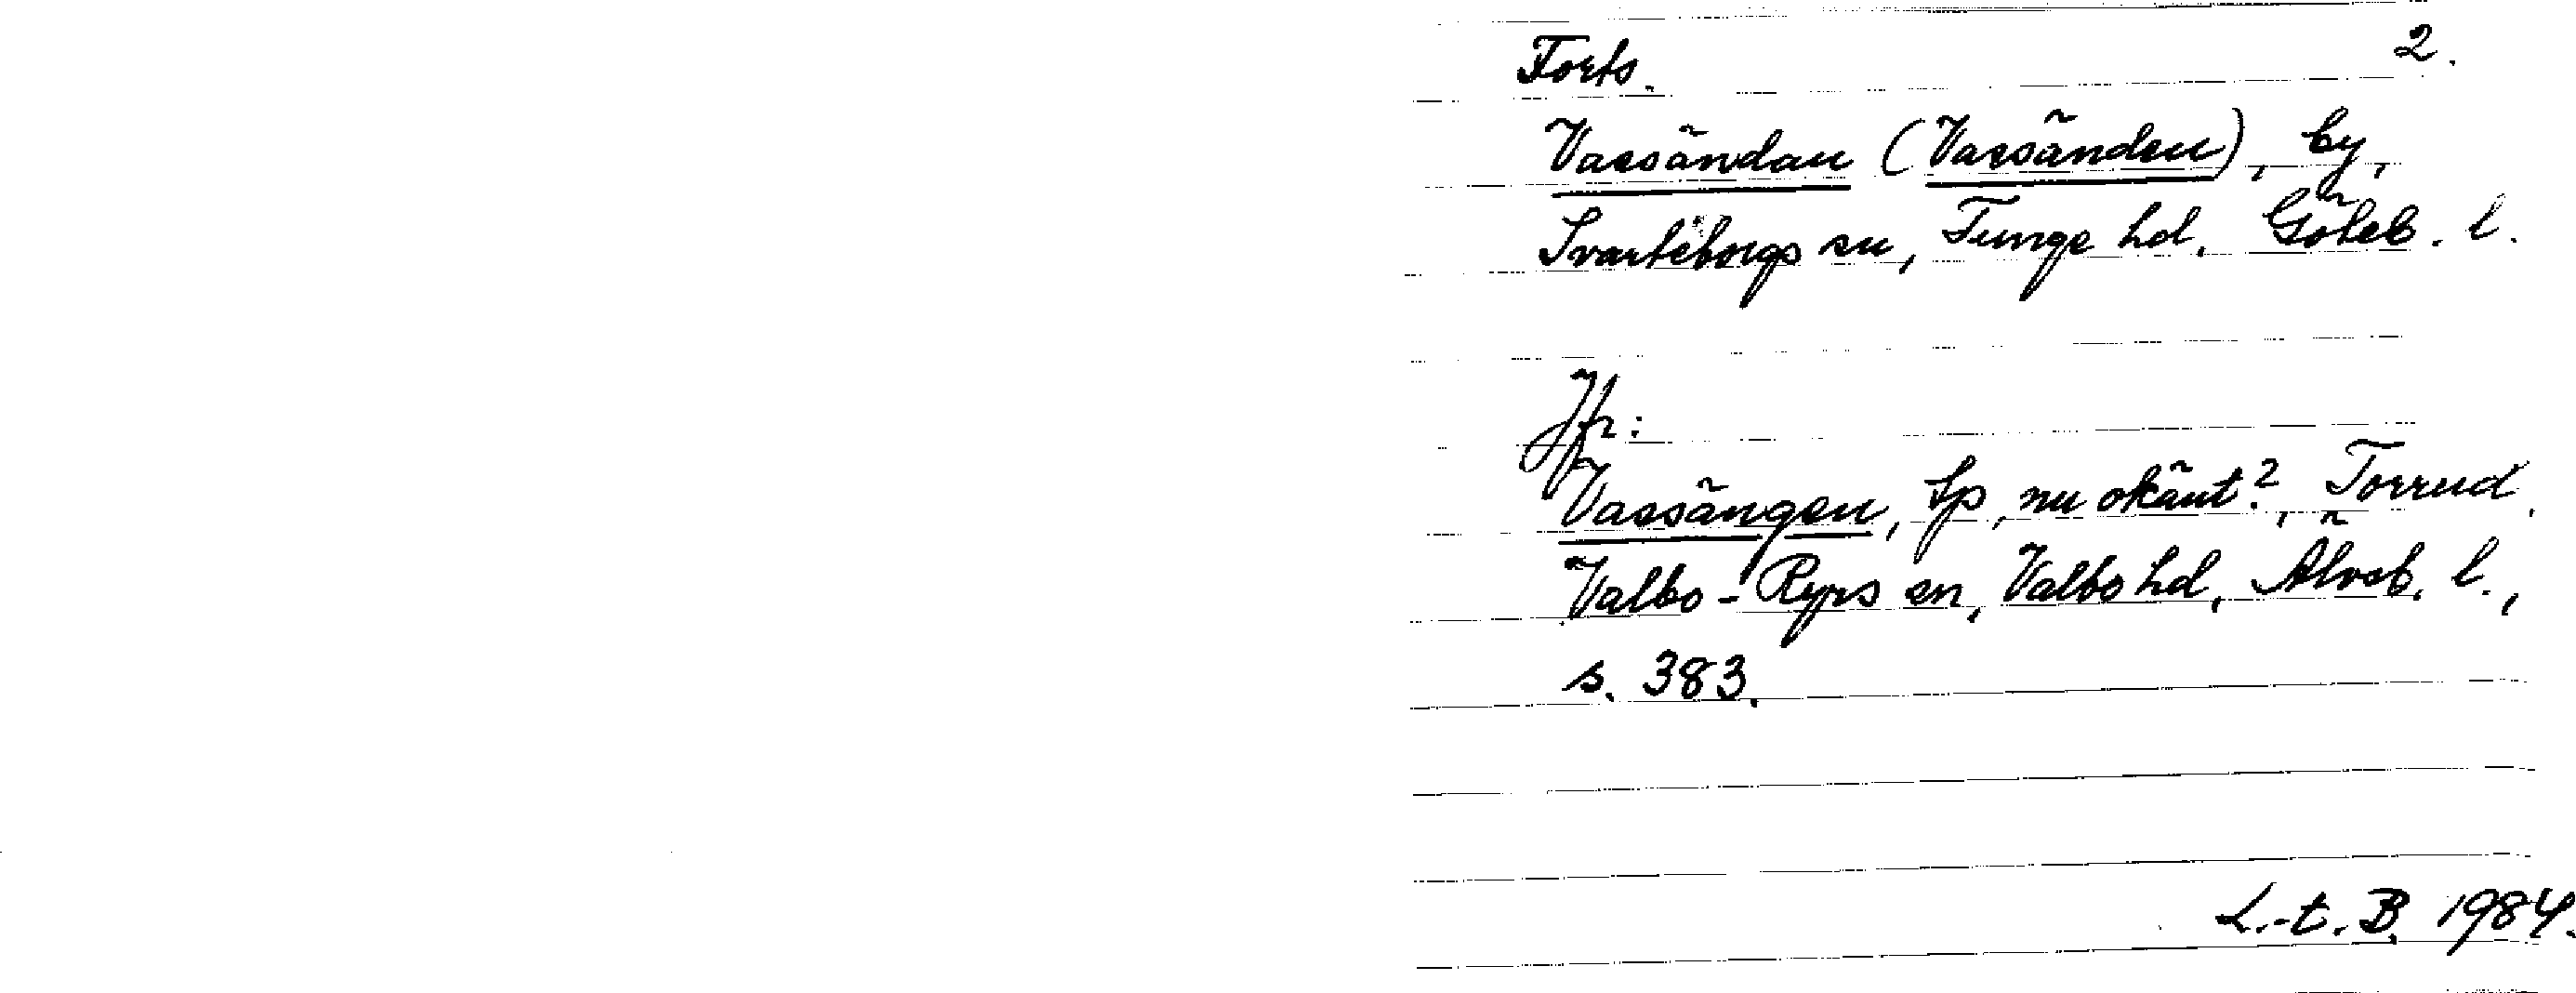 Forts. 2.
Vassändan (Vassänden), by,
Svarteborgs sn, Tunge hd. Göteb. l.
Jfr:
Vassängen, tp, nu okänt?, Torrud,
Valbo-Ryrs sn, Valbo hd, Älvsb. l.,
s. 383.
L.-t. B. 1984.